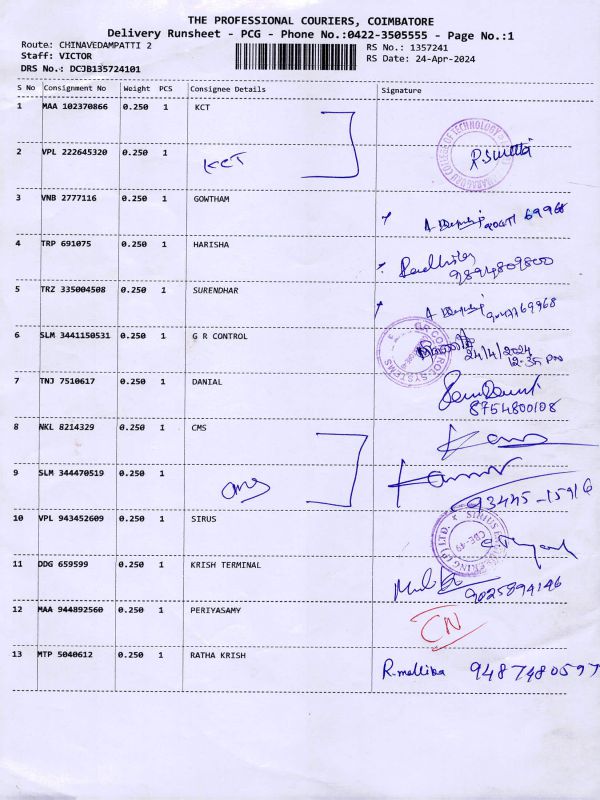 THE PROFESSIONAL COURIERS, COIMBATORE
Delivery Runsheet - PCG - Phone No.:0422-3505555 - Page No.:1
Route: CHINAVEDAMPATTI 2
Staff: VICTOR
DRS No.: DCJB135724101
RS No.: 1357241
RS Date: 24-Apr-2024
S No Consignment No Weight PCS Consignee Details Signature
1 MAA 102370866 0.250 1 KCT
2 VPL 222645320 0.250 1 KCT
3 VNB 2777116 0.250 1 GOWTHAM
4 TRP 691075 0.250 1 HARISHA
9894809800
5 TRZ 335004508 0.250 1 SURENDHAR
6 SLM 3441150531 0.250 1 G R CONTROL
24/4/2024
12.35 PM
7 TNJ 7510617 0.250 1 DANIAL
8754800108
8 NKL 8214329 0.250 1 CMS
9 SLM 344470519 0.250 1 CMS
93445-15916
10 VPL 943452609 0.250 1 SIRUS
11 DDG 659599 0.250 1 KRISH TERMINAL
9025894146
12 MAA 944892560 0.250 1 PERIYASAMY CN
13 MTP 5040612 0.250 1 RATHA KRISH R.mellika 9487480597